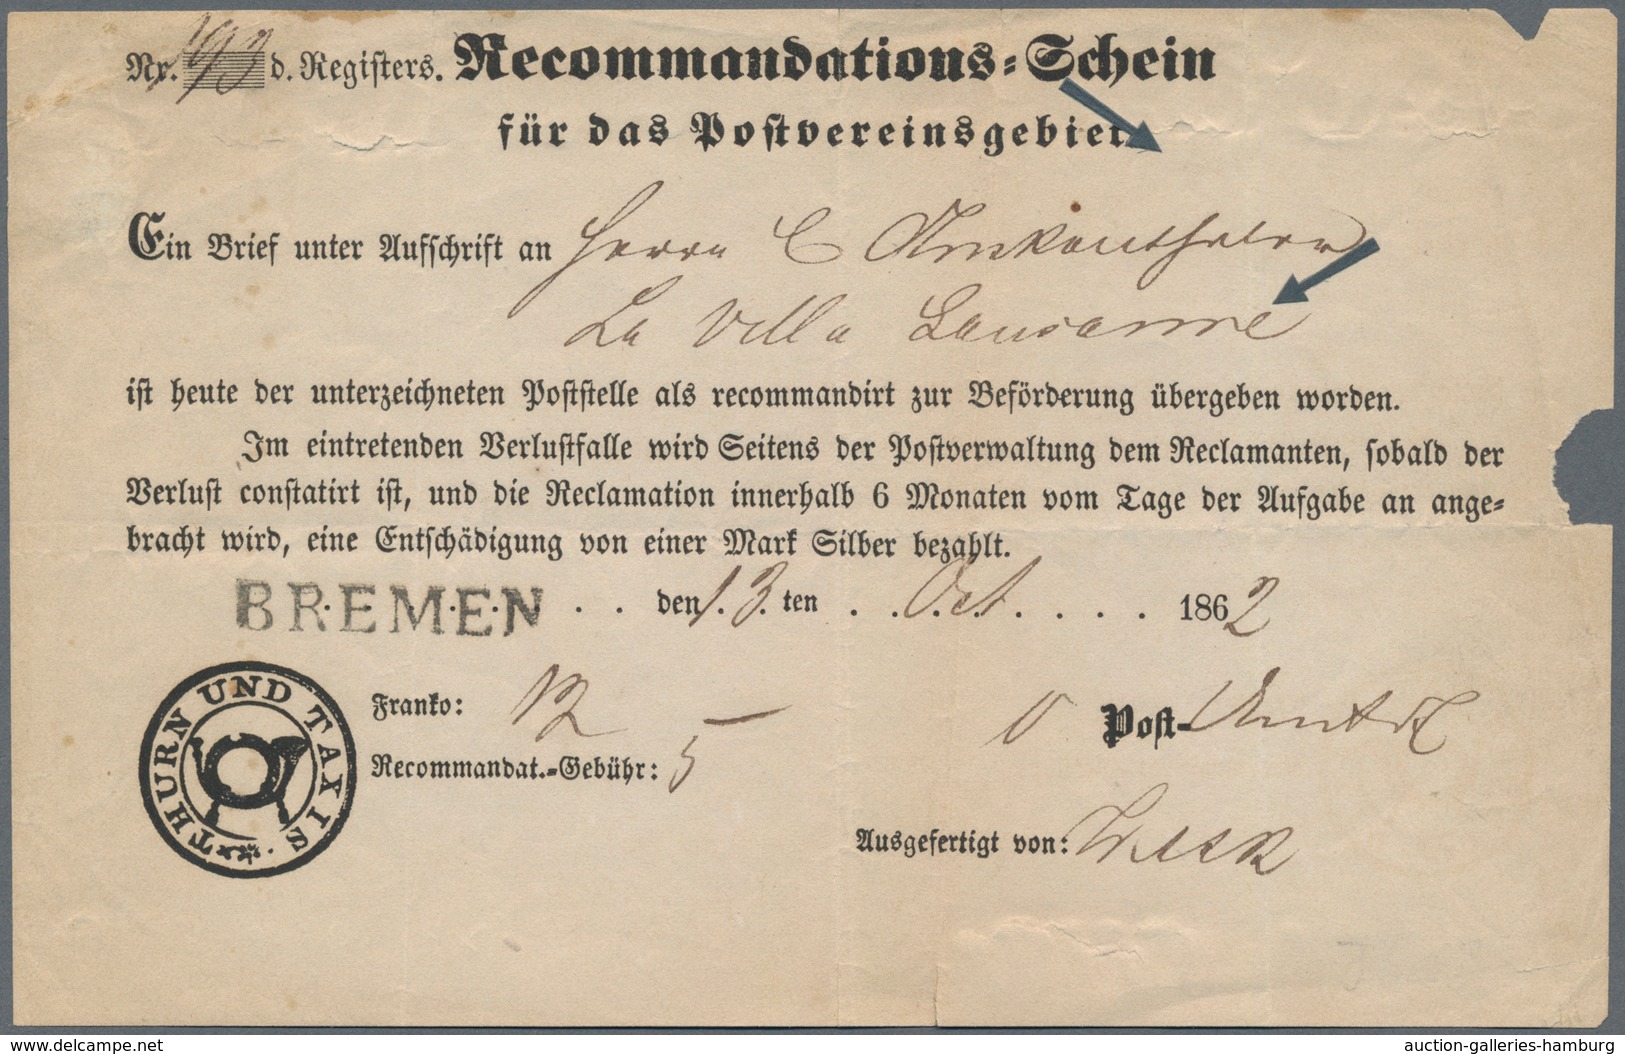 Nr. 193 d. Registers. Recommandations-Schein
für das Postvereinsgebiet
Ein Brief unter Aufschrift an Herrn C
La Villa Lausanne
ist heute der unterzeichneten Poststelle als recommandirt zur Beförderung übergeben worden.
Im eintretenden Verlustfalle wird Seitens der Postverwaltung dem Reclamanten, sobald der
Verlust constatirt ist, und die Reclamation innerhalb 6 Monaten vom Tage der Aufgabe an ange-
bracht wird, eine Entschädigung von einer Mark Silber bezahlt.
BREMEN . . den 13. ten . . Oct. . . . . 1862
THURN UND TAXIS.
Franko:
Post-
Recommandat.-Gebühr: 5
Ausgefertigt von:
www.delcampe.net
auction-galleries-hamburg